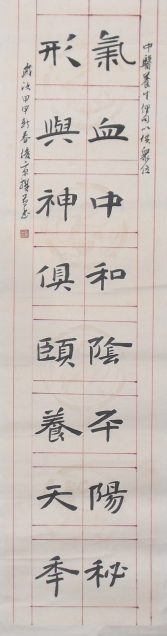 中醫養生
氣血中和陰平陽秘
形與神俱頤養天年
歲次甲申新春